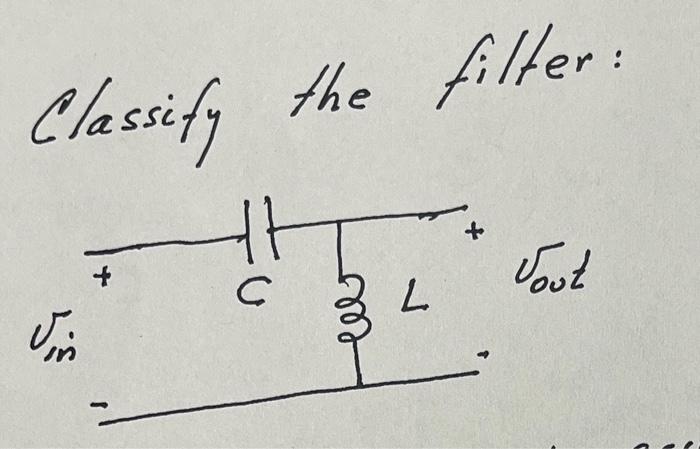 Classify the filter:
+ C L + Vout
Vin
- -